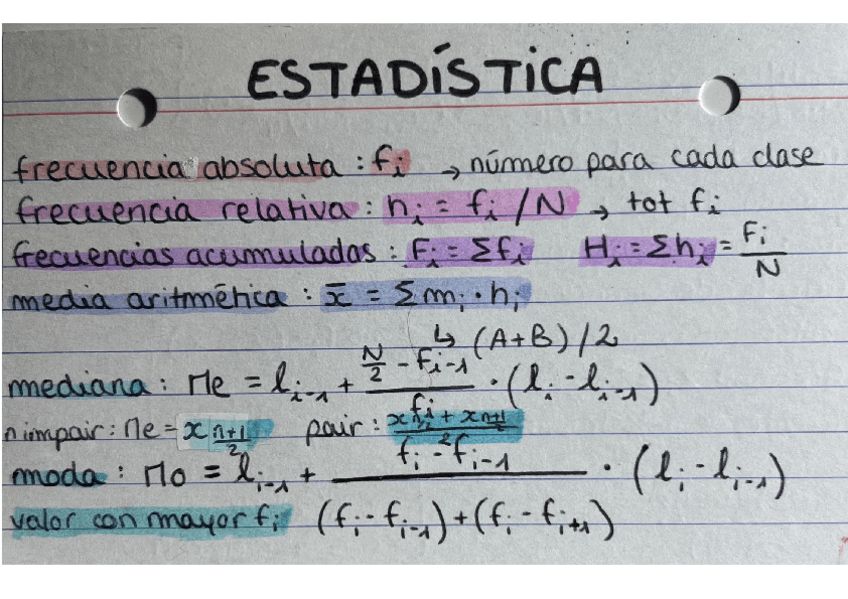 ESTADÍSTICA
frecuencia absoluta : fi → número para cada clase
frecuencia relativa : hi = fi / N → tot fi
frecuencias acumuladas : Fi = Σfi Hi = Σhi = Fi / N
media aritmética : x̄ = Σmi · hi
↳ (A+B) / 2
mediana : Me = li-1 + (N/2 - Fi-1) / fi · (li - li-1)
n impair : Me = x n+1/2 pair :
moda : Mo = li-1 + (fi - fi-1) / ((fi - fi-1) + (fi - fi+1)) · (li - li-1)
valor con mayor fi